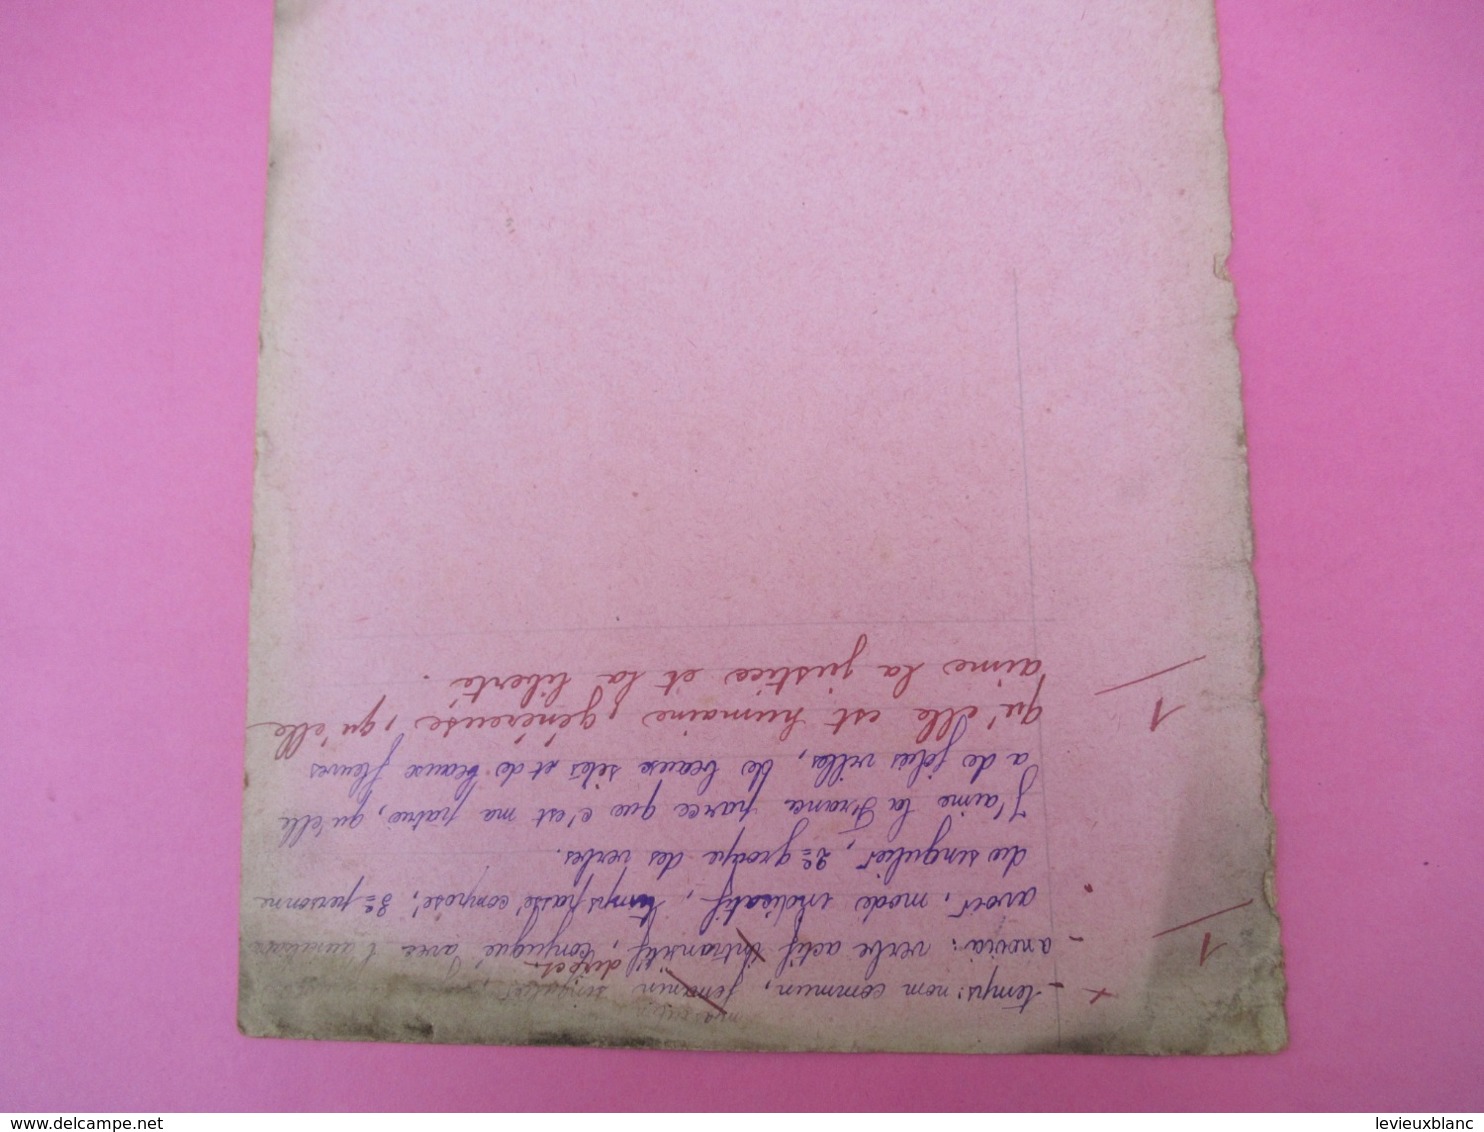 masculin
- temps: nom commun, feminin singulier,
direct
- a rovia: verbe actif intransitif, conjugué avec l'auxiliaire
avoir, mode indicatif, temps passé composé, 3e personne
du singulier, 2e groupe des verbes.
J'aime la France parce que c'est ma patrie, qu'elle
a de jolies villes, de beaux sites et de beaux fleurs
qu'elle est humaine, généreuse, qu'elle
aime la justice et la liberté.
x
1
1
delcampe.net
levieuxblanc